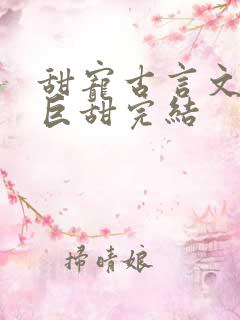 甜寵古言文
巨甜完結
掃晴娘